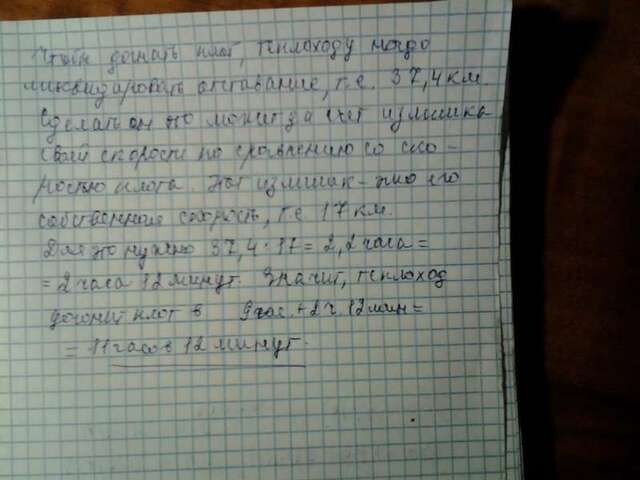 Чтобы догнать плот, теплоходу надо
ликвидировать отставание, т.е. 37,4 км.
Сделать он это может за счет излишка
своей скорости по сравнению со ско-
ростью плота. Этот излишек - это его
собственная скорость, т.е 17 км.
Для это нужно 37,4 : 17 = 2,2 часа =
= 2 часа 12 минут. Значит, теплоход
догонит плот в 9 час. + 2 ч. 12 мин =
= 11 часов 12 минут.